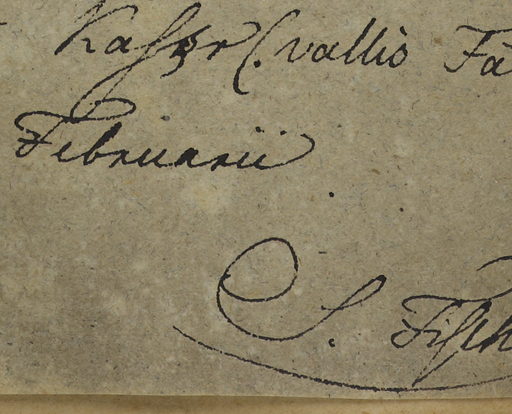 Kasser C. vallis Fä
Februarii
S. Fisch